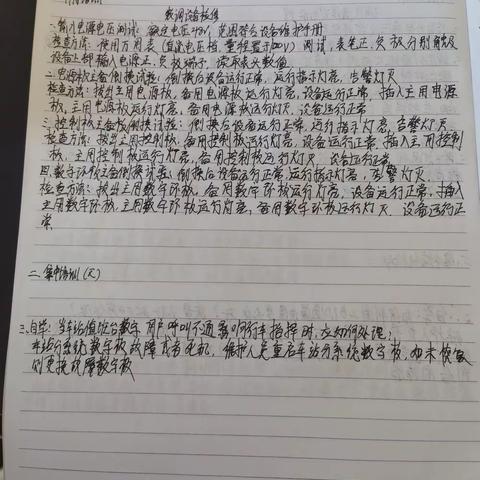 数调设备检修
一.输入电源电压测试: 额定电压48V, 范围符合设备维护手册
检查方法: 使用万用表(直流电压档,量程置于200V)测试,表笔正.负极分别触及
设备上部输入电源正.负极端子,读取表头数值
二.电源板主备倒换试验: 倒换后设备运行正常,运行指示灯亮,告警灯灭
检查方法: 拔出主用电源板,备用电源板运行灯亮,设备运行正常,插入主用电源
板,主用电源板运行灯亮,备用电源板运行灯灭,设备运行正常
三.控制板主备板倒换试验: 倒换后设备运行正常,运行指示灯亮,告警灯灭
检查方法: 拔出主用控制板,备用控制板运行灯亮,设备运行正常.插入主用控制
板,主用控制板运行灯亮,备用控制板运行灯灭,设备运行正常
四.数字环板主备倒换试验,倒换后设备运行正常,运行指示灯亮,告警灯灭
检查方法: 拔出主用数字环板,备用数字环板运行灯亮,设备运行正常,插入
主用数字环板,主用数字环板运行灯亮,备用数字环板运行灯灭,设备运行正
常
二.集中培训(天)
三.自学: 当车站值班台数字用户呼叫不通调度所行车指挥时,应如何处理:
车站分系统数字板故障或者死机,维护人员重启车站分系统数字板,如未恢复
则更换故障数字板